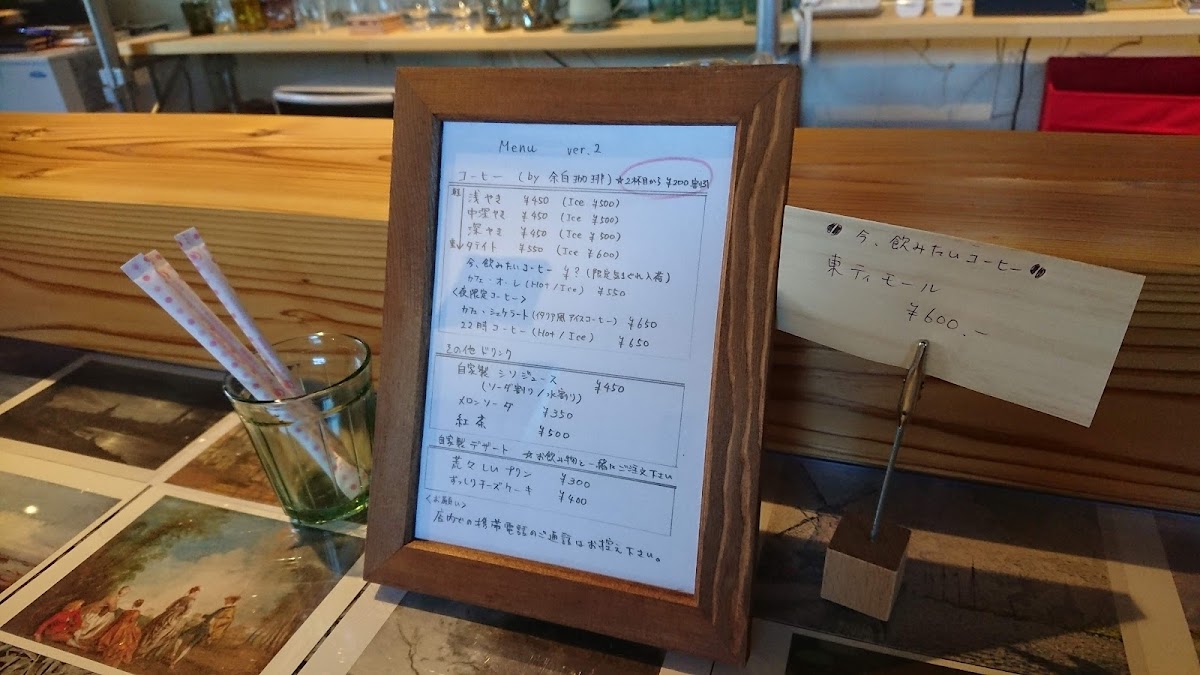 Menu ver.2
コーヒー (by 余白珈琲) ☆2杯目から ¥200割引
軽
浅やき ¥450 (Ice ¥500)
中深やき ¥450 (Ice ¥500)
深やき ¥450 (Ice ¥500)
重 タテイト ¥550 (Ice ¥600)
今、飲みたいコーヒー ¥? (限定気まぐれ入荷)
カフェ・オ・レ (Hot/Ice) ¥550
<夜限定コーヒー>
カフェ・シェケラート (イタリア風アイスコーヒー) ¥650
22時コーヒー (Hot/Ice) ¥650
その他ドリンク
自家製シソジュース ¥450
(ソーダ割り/水割り)
メロンソーダ ¥350
紅茶 ¥500
自家製デザート ☆お飲み物と一緒にご注文下さい
荒々しいプリン ¥300
ずっしりチーズケーキ ¥400
<お願い>
店内での携帯電話のご通話はお控え下さい。
今、飲みたいコーヒー
東ティモール
¥600.-